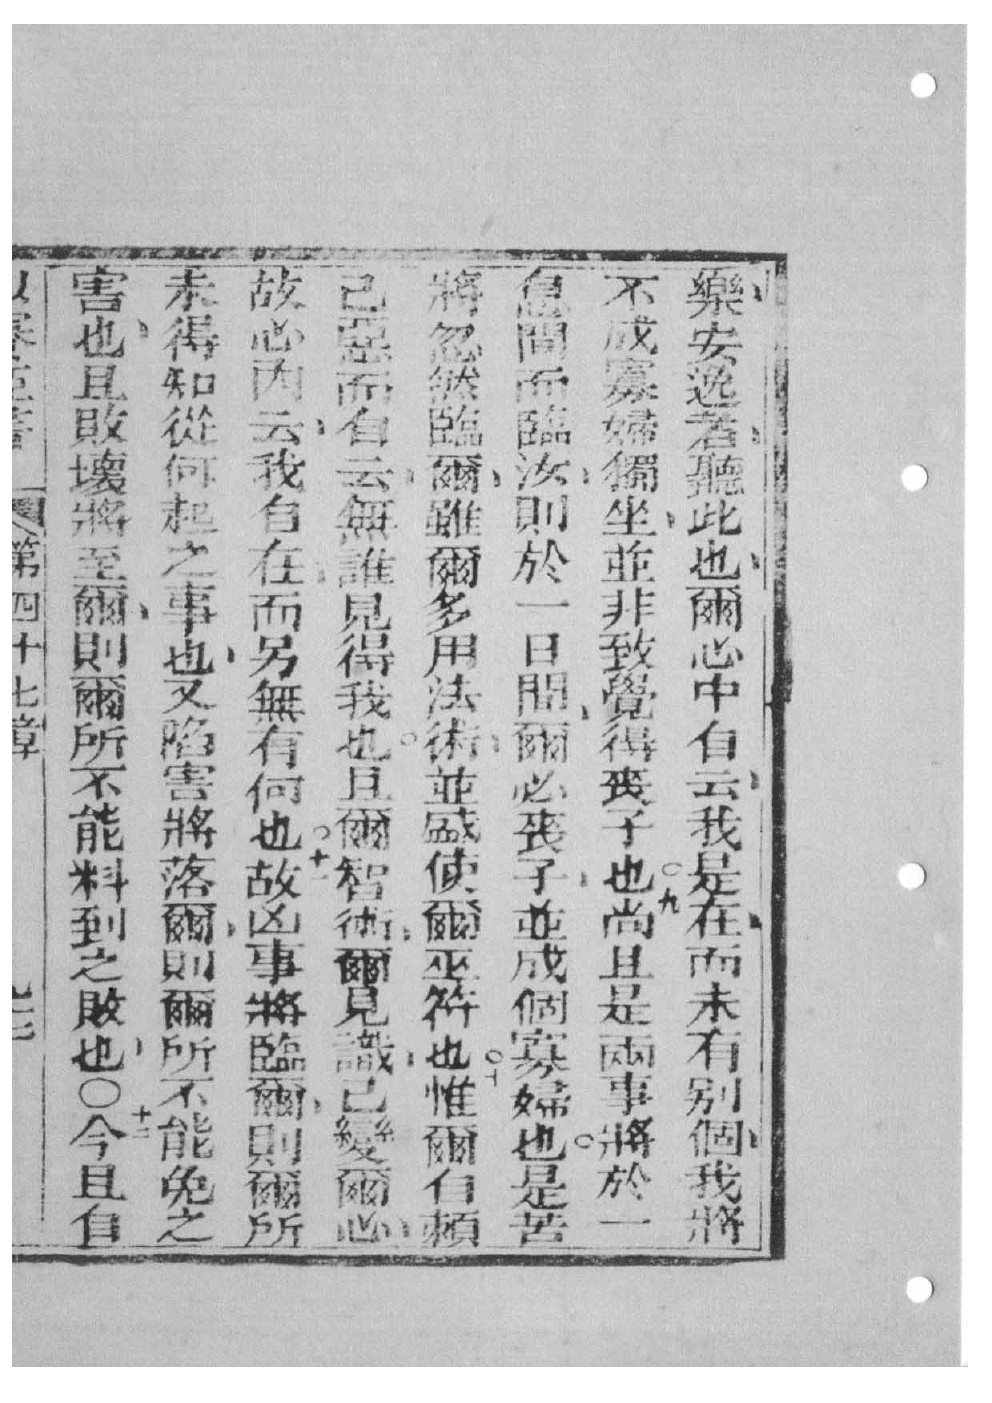 樂安逸者聽此也爾心中自云我是在而未有别個我將
不成寡婦獨坐並非致覺得喪子也○九尚且是兩事將於一
息間而臨汝則於一日間爾必喪子並成個寡婦也○是苦
將忽然臨爾雖爾多用法術並盛使爾巫符也○十惟爾自賴
己惡而自云無誰見得我也○且爾智術爾見識已變爾心
故心內云我自在而另無有何也○十一故凶事將臨爾則爾所
未得知從何起之事也又陷害將落爾則爾所不能免之
害也且敗壞將至爾則爾所不能料到之敗也○十二今且自
以賽亞書 第四十七章